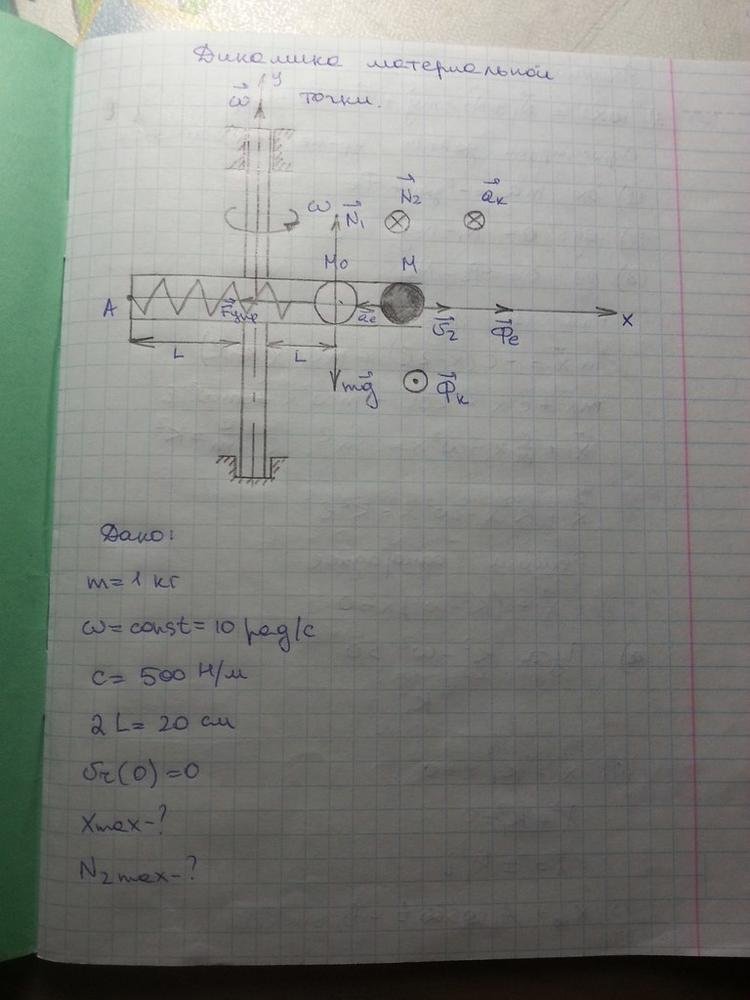 Динамика материальной
точки.
y
ω
ω
N₁
N₂
aк
M₀
M
A
Fупр
aе
υ₂
Фе
x
L
L
mg
Фк
Дано:
m = 1 кг
ω = const = 10 рад/с
c = 500 Н/м
2L = 20 см
υr(0) = 0
xmax - ?
N₂max - ?